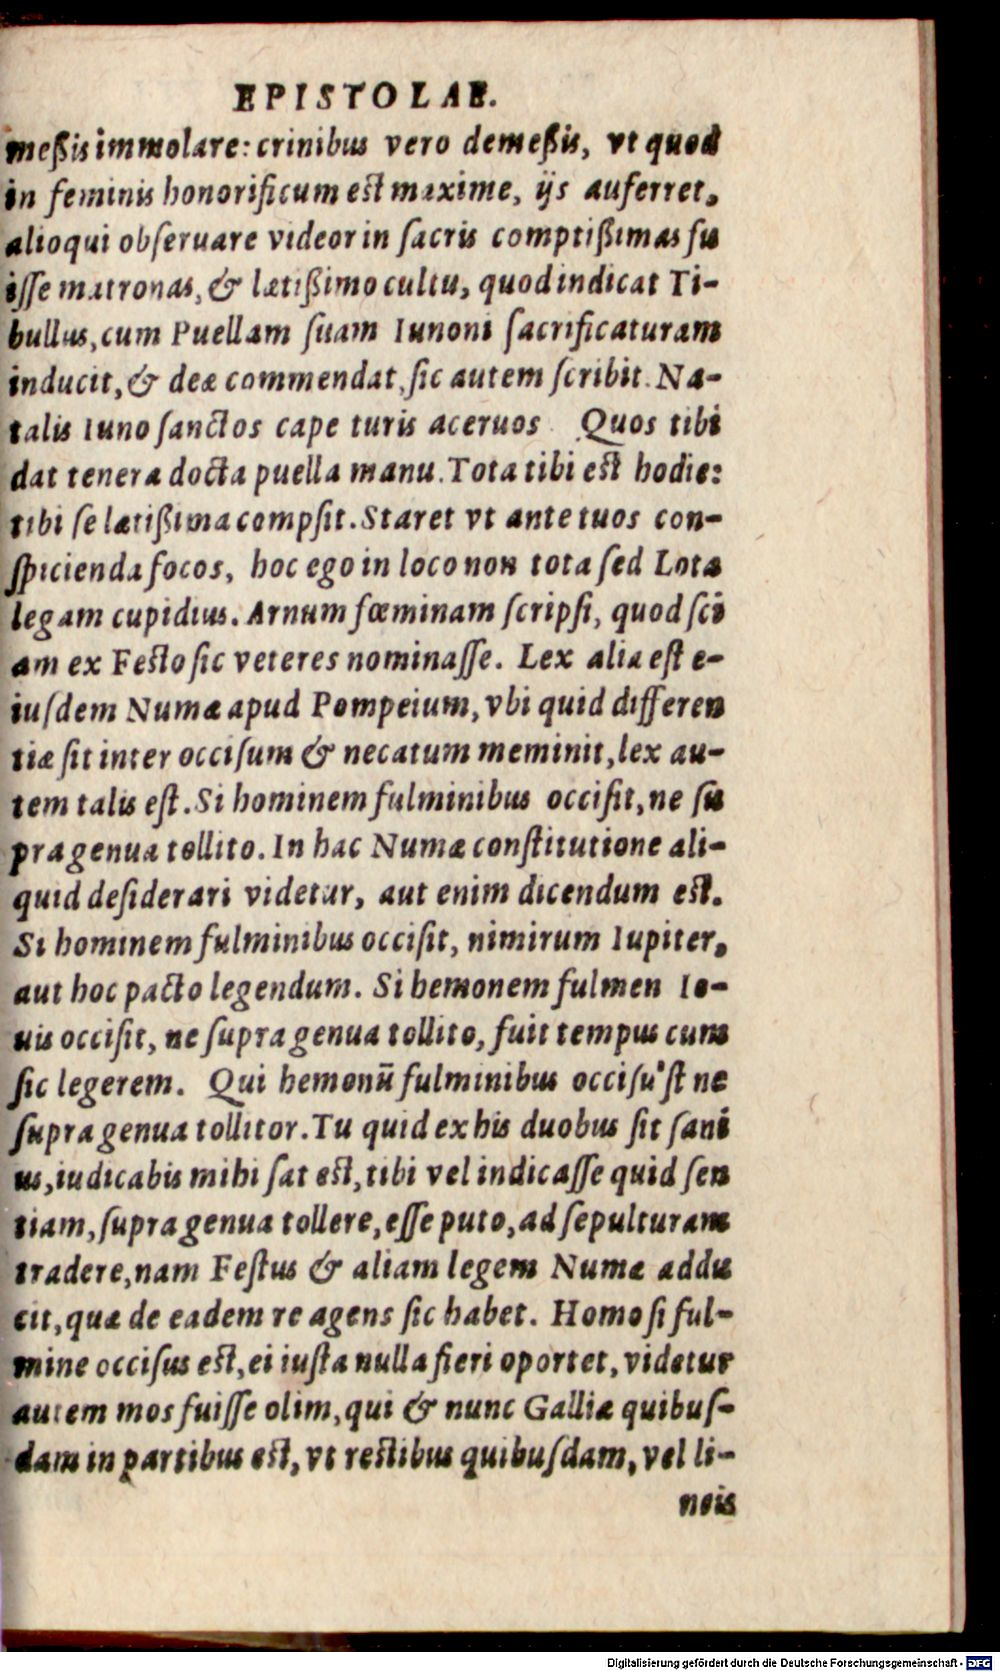 EPISTOLAE.
meßis immolare: crinibus vero demeßis, vt quod
in feminis honorificum est maxime, ijs auferret,
alioqui obseruare videor in sacris comptißimas fu
isse matronas, & lætißimo cultu, quod indicat Ti-
bullus, cum Puellam suam Iunoni sacrificaturam
inducit, & deæ commendat, sic autem scribit. Na-
talis Iuno sanctos cape turis aceruos Quos tibi
dat tenera docta puella manu. Tota tibi est hodie:
tibi se lætißima compsit. Staret vt ante tuos con-
spicienda focos, hoc ego in loco non tota sed Lota
legam cupidius. Arnum fœminam scripsi, quod sci
am ex Festo sic veteres nominasse. Lex alia est e-
iusdem Numæ apud Pompeium, vbi quid differen
tiæ sit inter occisum & necatum meminit, lex au-
tem talis est. Si hominem fulminibus occisit, ne su
pra genua tollito. In hac Numæ constitutione ali-
quid desiderari videtur, aut enim dicendum est.
Si hominem fulminibus occisit, nimirum Iupiter,
aut hoc pacto legendum. Si hemonem fulmen Io-
uis occisit, ne supra genua tollito, fuit tempus cum
sic legerem. Qui hemonũ fulminibus occisu'st ne
supra genua tollitor. Tu quid ex his duobus sit sani
us, iudicabis mihi sat est, tibi vel indicasse quid sen
tiam, supra genua tollere, esse puto, ad sepulturam
tradere, nam Festus & aliam legem Numæ addu
cit, quæ de eadem re agens sic habet. Homo si ful-
mine occisus est, ei iusta nulla fieri oportet, videtur
autem mos fuisse olim, qui & nunc Galliæ quibus-
dam in partibus est, vt restibus quibusdam, vel li-
neis
Digitalisierung gefördert durch die Deutsche Forschungsgemeinschaft - DFG